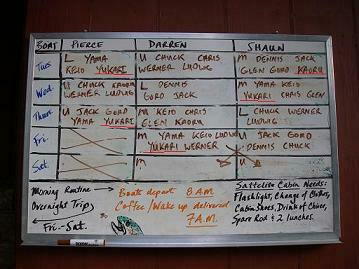 BOAT PIERCE DARREN SHAUN
Tues L YAMA U CHUCK CHRIS M DENNIS JACK
KEIO YUKARI WERNER LUDWG GLEN GORD KAORU
Wed. U CHUCK KAORU L DENNIS M YAMA KEIO
WERNER LUDWIG GORD JACK YUKARI CHRIS GLEN
Thurs U JACK GORD M KEIO CHRIS L CHUCK WERNER
YAMA YUKARI GLEN KAORU LUDWIG
Fri. M YAMA KEIO LUDWIG U JACK GORD
YUKARI WERNER DENNIS CHUCK
Sat. M U
Morning Routine → Boats depart 8 A.M.
Coffee/Wake up delivered
7 A.M.
Overnight Trips
← Fri.-Sat.
Sattelite Cabin Needs:
Flashlight, Change of Clothes,
Cabin Shoes, Drink of Choice,
Spare Rod & 2 lunches.